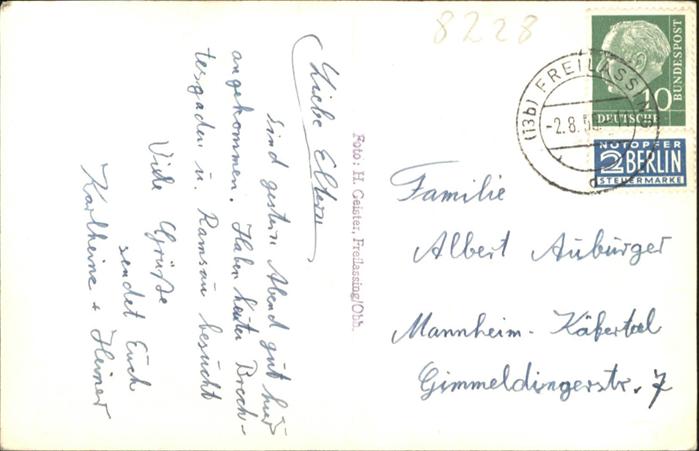 8228
Liebe Eltern
sind gestern Abend gut hier
angekommen. Haben heute Berch-
tesgaden u. Ramsau besucht
Viele Grüße
sendet Euch
Karlheinz + Heiner
Foto: H. Geister, Freilassing/Obb.
(13b) FREILASSING
-2.8.5
DEUTSCHE
BUNDESPOST
10
NOTOPFER
2 BERLIN
STEUERMARKE
Familie
Albert Auburger
Mannheim-Käfertal
Gimmeldingerstr. 7